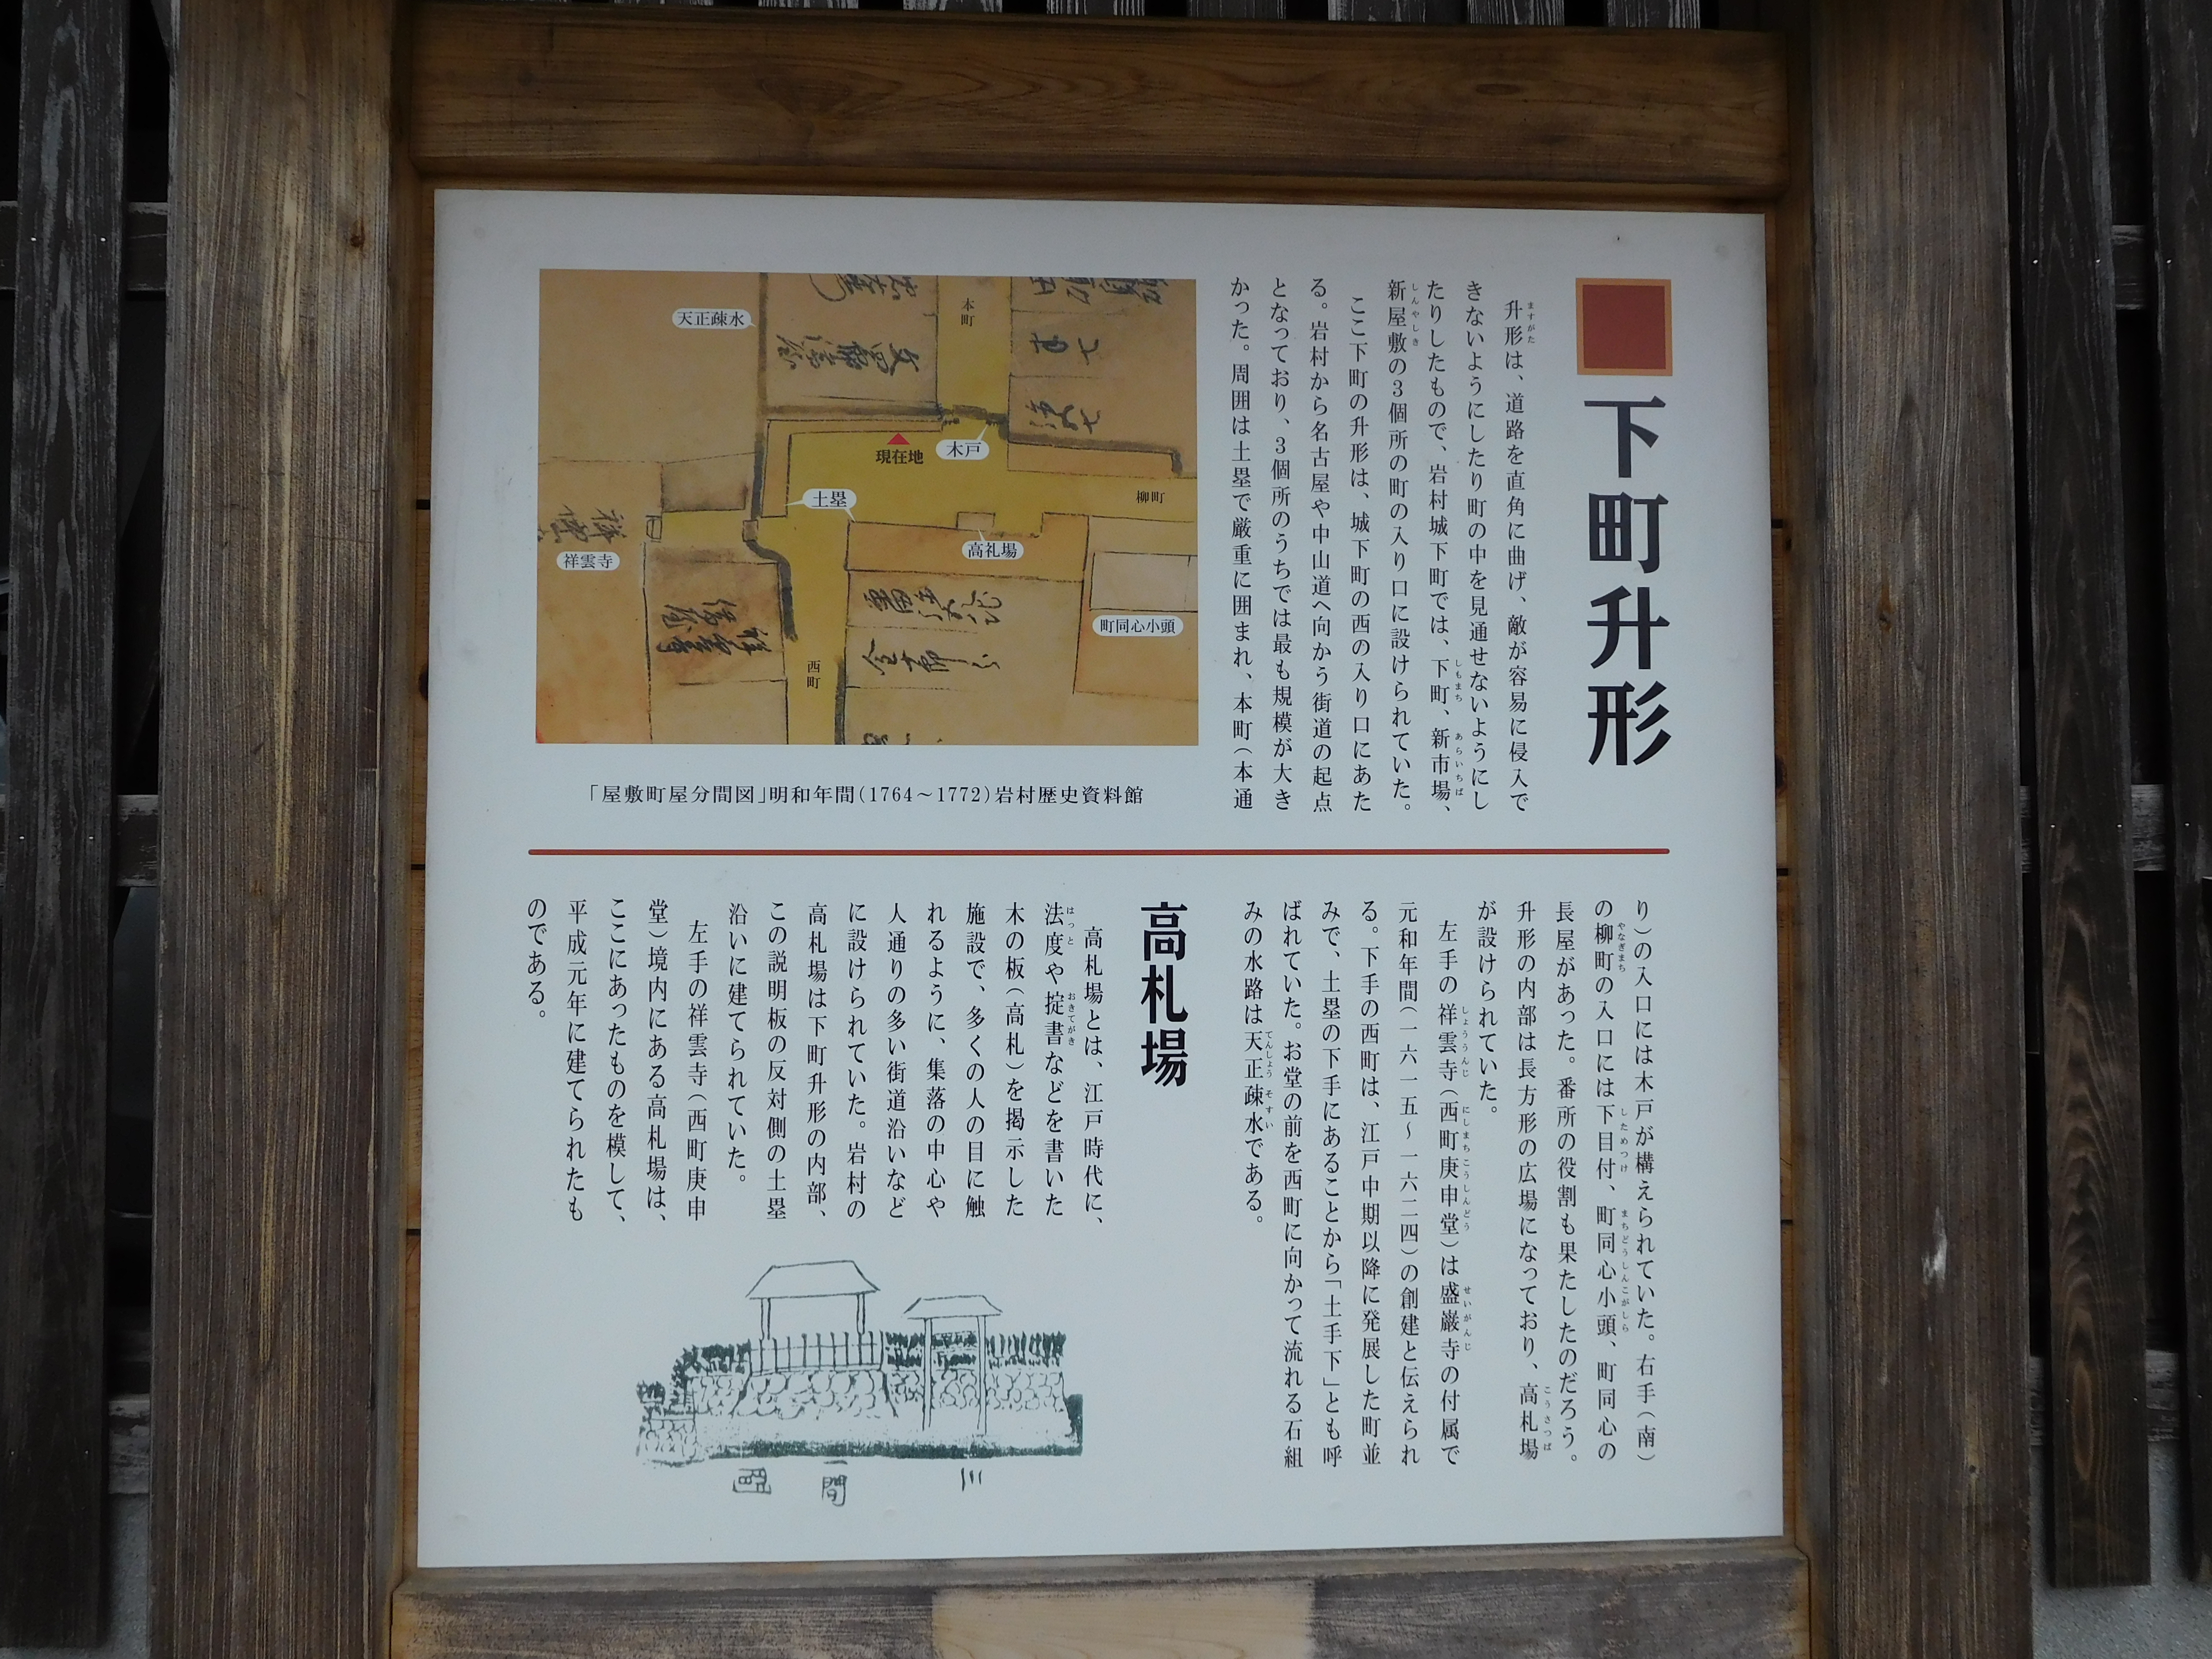 下町升形
升形は、道路を直角に曲げ、敵が容易に侵入で
きないようにしたり町の中を見通せないようにし
たりしたもので、岩村城下町では、下町、新市場、
新屋敷の3個所の町の入り口に設けられていた。
ここ下町の升形は、城下町の西の入り口にあた
る。岩村から名古屋や中山道へ向かう街道の起点
となっており、3個所のうちでは最も規模が大き
かった。周囲は土塁で厳重に囲まれ、本町(本通
天正疎水
本町
木戸
現在地
土塁
柳町
高礼場
祥雲寺
町同心小頭
西町
「屋敷町屋分間図」明和年間(1764～1772)岩村歴史資料館
り)の入口には木戸が構えられていた。右手(南)
の柳町の入口には下目付、町同心小頭、町同心の
長屋があった。番所の役割も果たしたのだろう。
升形の内部は長方形の広場になっており、高札場
が設けられていた。
左手の祥雲寺(西町庚申堂)は盛巌寺の付属で
元和年間(一六一五～一六二四)の創建と伝えられ
る。下手の西町は、江戸中期以降に発展した町並
みで、土塁の下手にあることから「土手下」とも呼
ばれていた。お堂の前を西町に向かって流れる石組
みの水路は天正疎水である。
高札場
高札場とは、江戸時代に、
法度や掟書などを書いた
木の板(高札)を掲示した
施設で、多くの人の目に触
れるように、集落の中心や
人通りの多い街道沿いなど
に設けられていた。岩村の
高札場は下町升形の内部、
この説明板の反対側の土塁
沿いに建てられていた。
左手の祥雲寺(西町庚申
堂)境内にある高札場は、
ここにあったものを模して、
平成元年に建てられたも
のである。